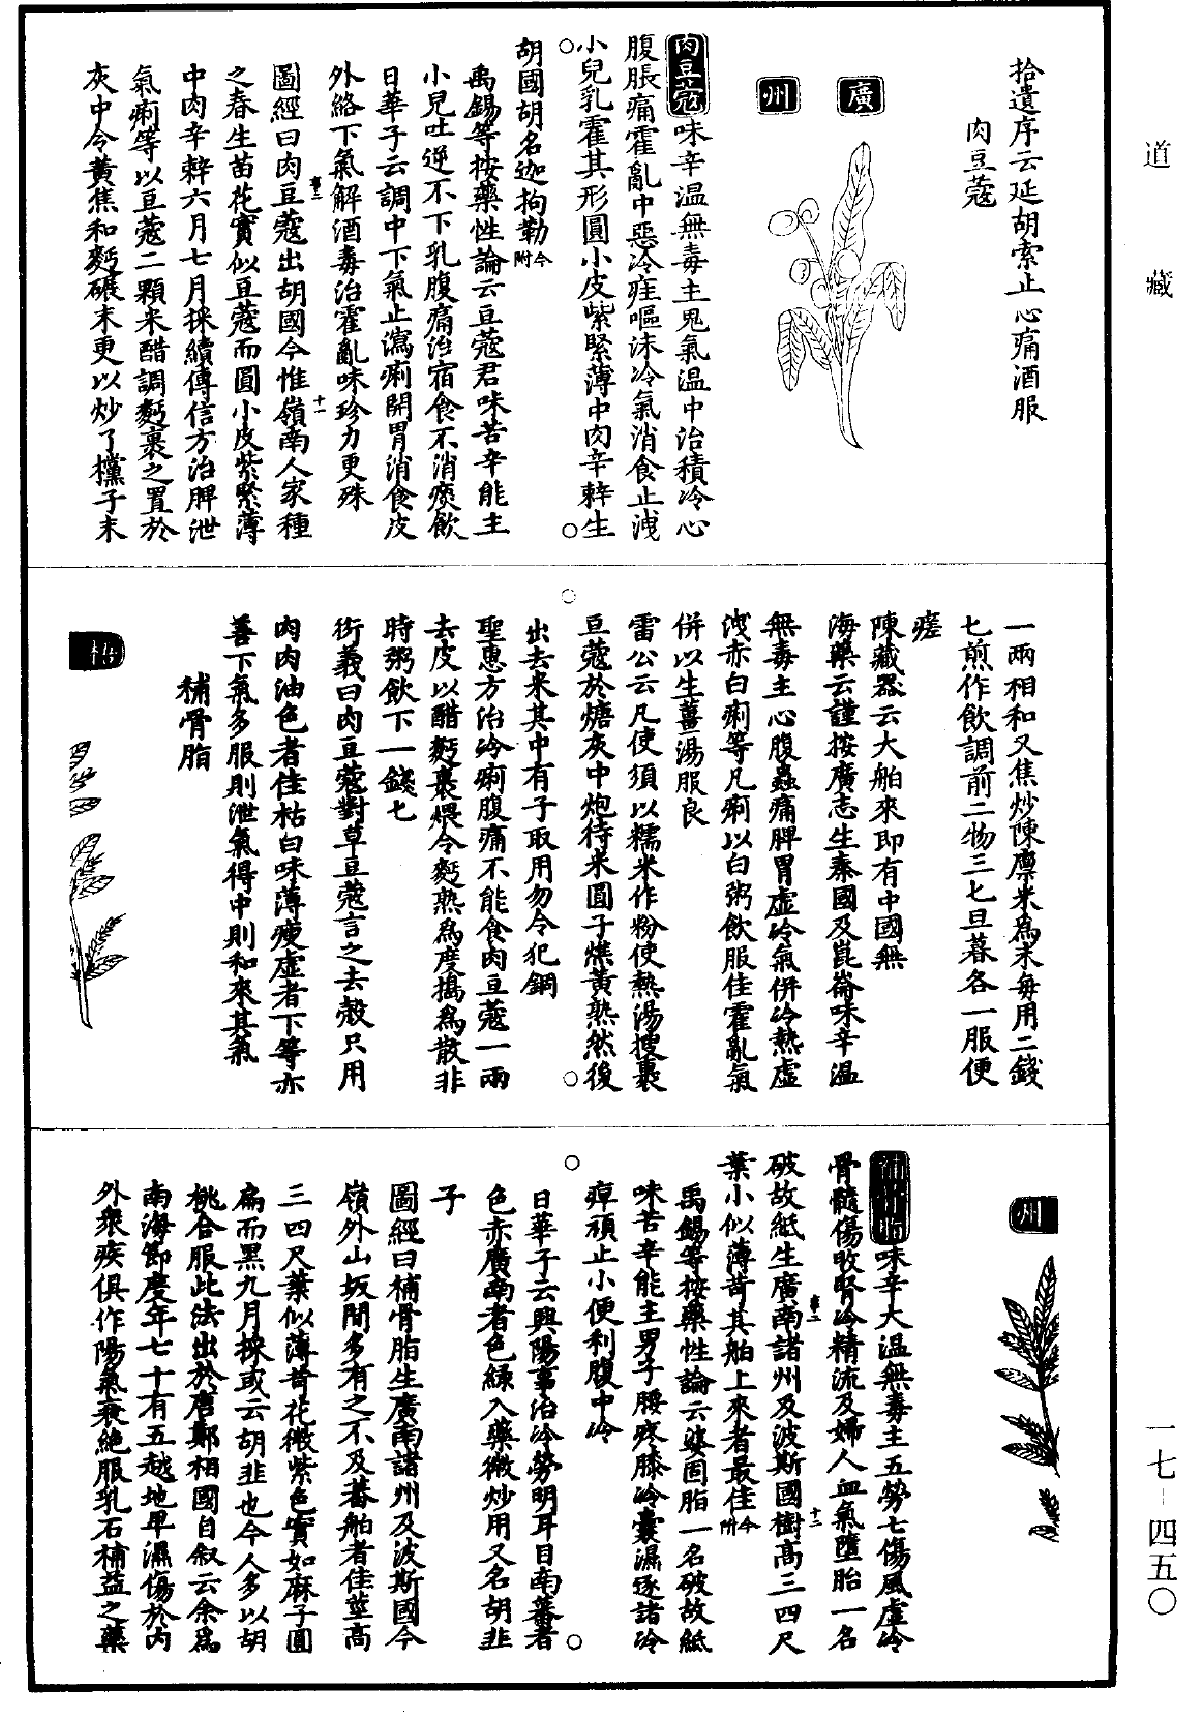 道藏
一七-四五〇
拾遺序云延胡索止心痛酒服
肉豆蔻
廣
州
肉豆蔻味辛温無毒主鬼氣温中治積冷心
腹脹痛霍亂中惡冷疰嘔沫冷氣消食止洩
小兒乳霍其形圓小皮紫緊薄中肉辛辢生
胡國胡名迦拘勒今附
禹錫等按藥性論云豆蔻君味苦辛能主
小兒吐逆不下乳腹痛治宿食不消痰飲
日華子云調中下氣止瀉痢開胃消食皮
外絡下氣解酒毒治霍亂味珍力更殊
圖經曰肉豆蔻出胡國今惟嶺南人家種
之春生苗花實似豆蔻而圓小皮紫緊薄
中肉辛辢六月七月採續傳信方治脾泄
氣痢等以豆蔻二顆米醋調麪裹之置於
灰中令黄焦和麪碾末更以炒了欓子末
一兩相和又焦炒陳廪米爲末每用二錢
七煎作飲調前二物三七旦暮各一服便
瘥
陳藏器云大舶來即有中國無
海藥云謹按廣志生秦國及崑崙味辛温
無毒主心腹蟲痛脾胃虚冷氣併冷熱虚
洩赤白痢等凡痢以白粥飲服佳霍亂氣
併以生薑湯服良
雷公云凡使須以糯米作粉使熱湯搜裹
豆蔻於煻灰中炮待米圓子燋黄熟然後
出去米其中有子取用勿令犯銅
聖惠方治冷痢腹痛不能食肉豆蔻一兩
去皮以醋麪裹煨令麪熟爲度搗爲散非
時粥飲下一錢七
衍義曰肉豆蔻對草豆蔻言之去殼只用
肉肉油色者佳枯白味薄瘦虚者下等亦
善下氣多服則泄氣得中則和來其氣
補骨脂
梧
州
補骨脂味辛大温無毒主五勞七傷風虚冷
骨髓傷敗腎冷精流及婦人血氣墮胎一名
破故紙生廣南諸州及波斯國樹高三四尺
葉小似薄苛其舶上來者最佳今附
禹錫等按藥性論云婆固脂一名破故紙
味苦辛能主男子腰疼膝冷囊濕逐諸冷
痺頑止小便利腹中冷
日華子云興陽事治冷勞明耳目南蕃者
色赤廣南者色緑入藥微炒用又名胡韭
子
圖經曰補骨脂生廣南諸州及波斯國今
嶺外山坂間多有之不及蕃舶者佳莖高
三四尺葉似薄苛花微紫色實如麻子圓
扁而黑九月採或云胡韭也今人多以胡
桃合服此法出於唐鄭相國自敘云余爲
南海節度年七十有五越地卑濕傷於内
外衆疾俱作陽氣衰絶服乳石補益之藥